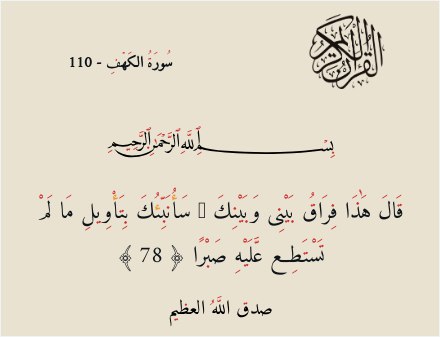 القرآن الكريم
سُورَةُ الكَهْفِ - 110
بِسْمِ اللَّهِ الرَّحْمَٰنِ الرَّحِيمِ
قَالَ هَٰذَا فِرَاقُ بَيْنِى وَبَيْنِكَ ۚ سَأُنَبِّئُكَ بِتَأْوِيلِ مَا لَمْ
تَسْتَطِع عَّلَيْهِ صَبْرًا ﴿ 78 ﴾
صدق اللَّهُ العظيم